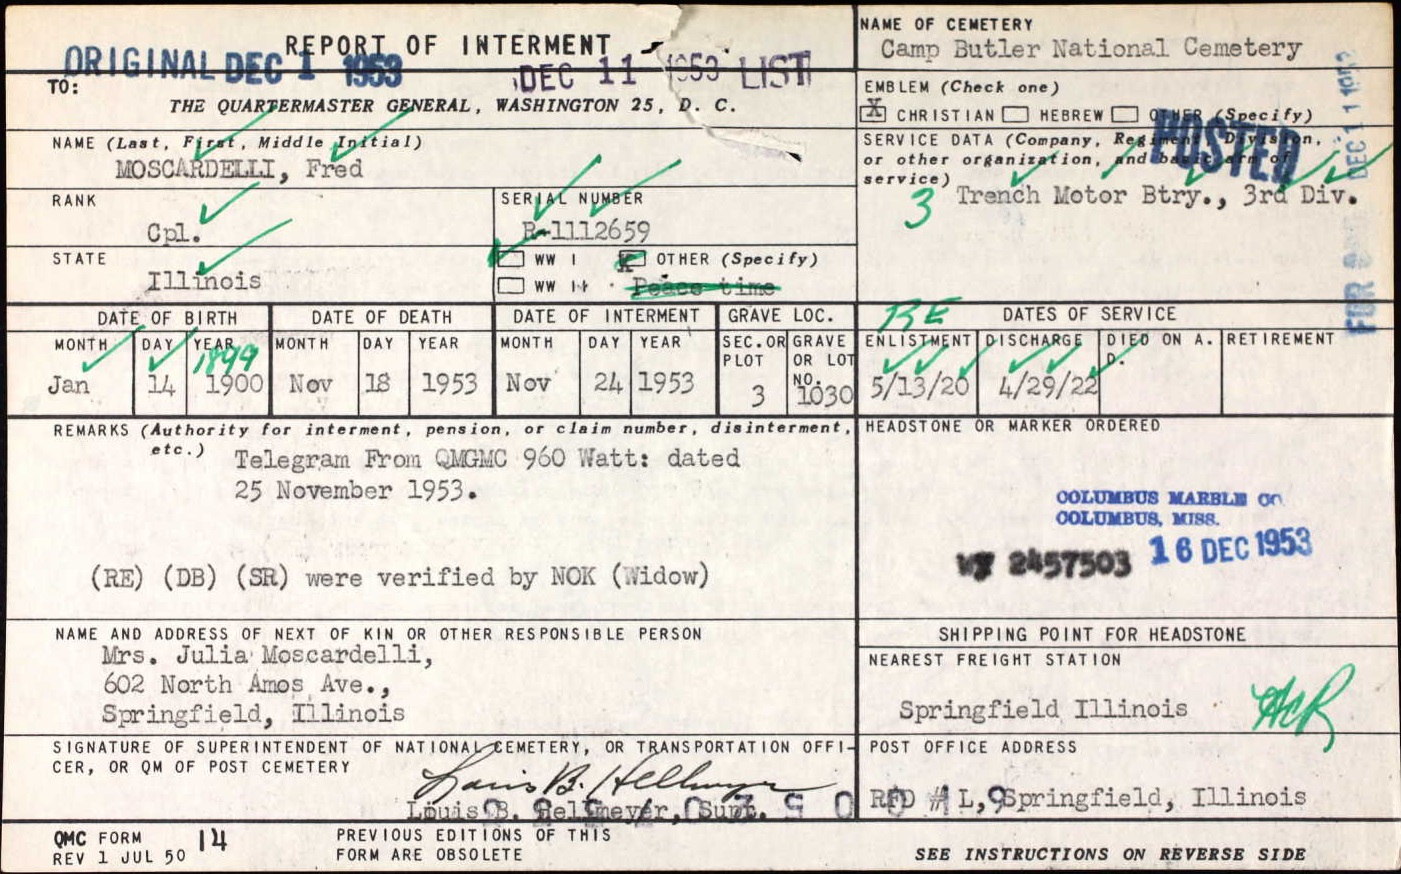 REPORT OF INTERMENT
ORIGINAL DEC 1 1953
DEC 11 1953 LIST
TO:
THE QUARTERMASTER GENERAL, WASHINGTON 25, D. C.
NAME (Last, First, Middle Initial)
MOSCARDELLI, Fred
RANK
Cpl.
SERIAL NUMBER
R-1112659
STATE
Illinois
WW I
X OTHER (Specify)
WW II
Peace time
NAME OF CEMETERY
Camp Butler National Cemetery
EMBLEM (Check one)
X CHRISTIAN HEBREW OTHER (Specify)
SERVICE DATA (Company, Regiment, Division,
or other organization, and basic arm of
service)
POSTED
DEC 11 1953
3 Trench Motor Btry., 3rd Div.
DATE OF BIRTH
MONTH DAY YEAR
1899
Jan 14 1900
DATE OF DEATH
MONTH DAY YEAR
Nov 18 1953
DATE OF INTERMENT
MONTH DAY YEAR
Nov 24 1953
GRAVE LOC.
SEC. OR PLOT
3
GRAVE OR LOT NO.
1030
RE
DATES OF SERVICE
ENLISTMENT DISCHARGE DIED ON A. D. RETIREMENT
5/13/20 4/29/22
REMARKS (Authority for interment, pension, or claim number, disinterment,
etc.)
Telegram From QMGMC 960 Watt: dated
25 November 1953.
(RE) (DB) (SR) were verified by NOK (Widow)
HEADSTONE OR MARKER ORDERED
COLUMBUS MARBLE
COLUMBUS, MISS.
2457503 16 DEC 1953
NAME AND ADDRESS OF NEXT OF KIN OR OTHER RESPONSIBLE PERSON
Mrs. Julia Moscardelli,
602 North Amos Ave.,
Springfield, Illinois
SHIPPING POINT FOR HEADSTONE
NEAREST FREIGHT STATION
Springfield Illinois
SIGNATURE OF SUPERINTENDENT OF NATIONAL CEMETERY, OR TRANSPORTATION OFFI-
CER, OR QM OF POST CEMETERY
Louis B. Hellmeyer
Louis B. Hellmeyer, Supt.
POST OFFICE ADDRESS
RFD # 1 L, Springfield, Illinois
QMC FORM 14
REV 1 JUL 50
PREVIOUS EDITIONS OF THIS
FORM ARE OBSOLETE
SEE INSTRUCTIONS ON REVERSE SIDE